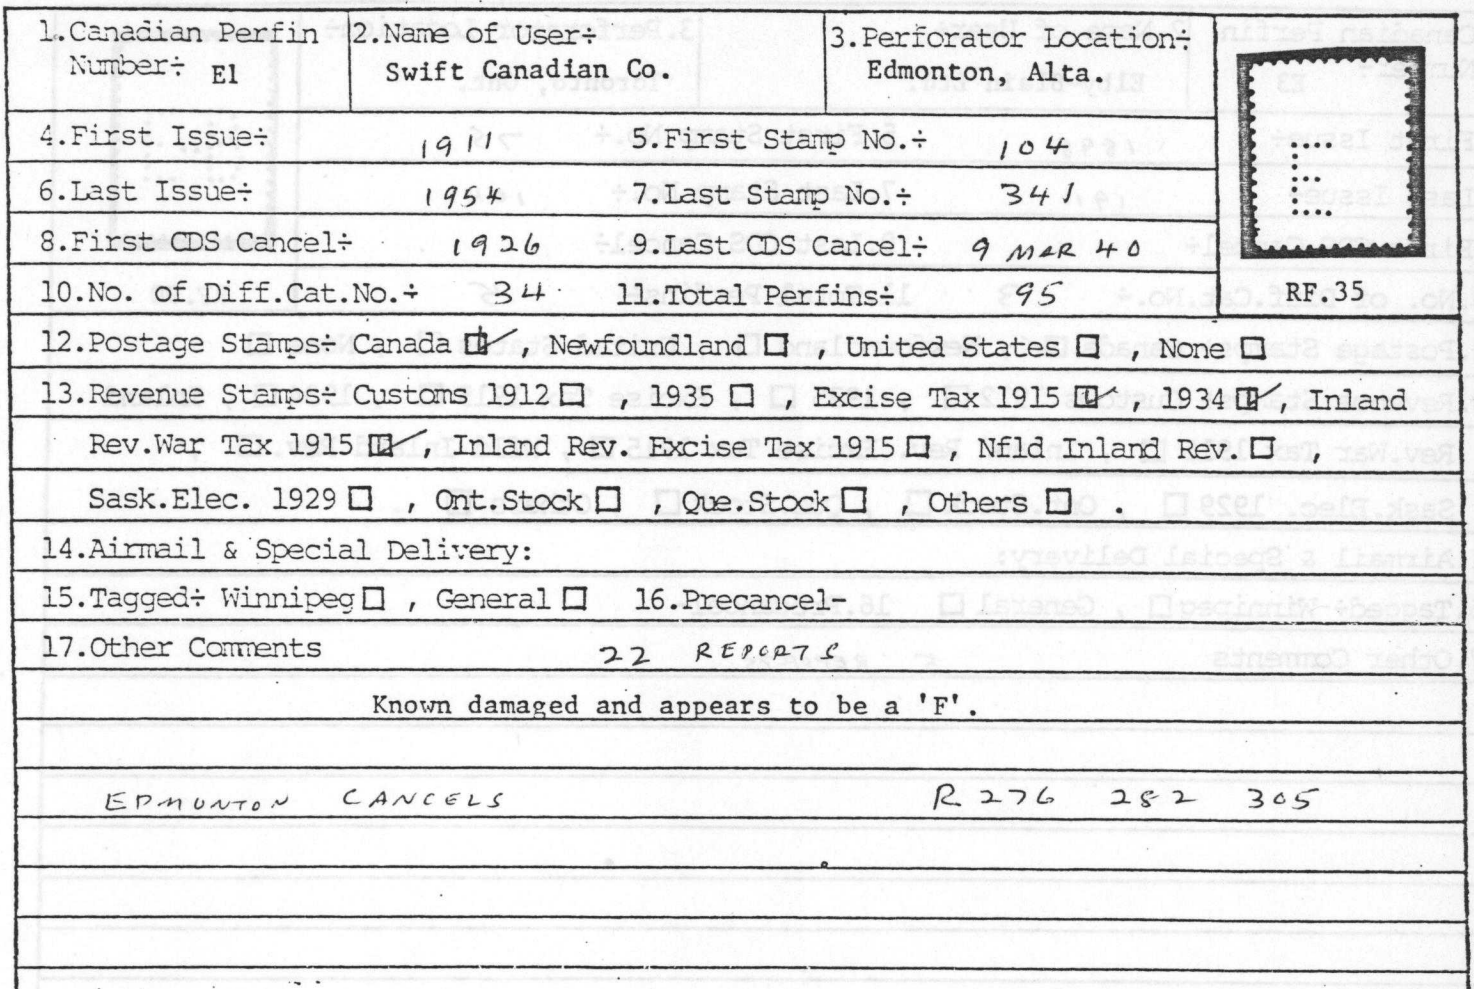 1.Canadian Perfin Number÷ E1
2.Name of User÷ Swift Canadian Co.
3.Perforator Location÷ Edmonton, Alta.
4.First Issue÷ 1911 5.First Stamp No.÷ 104
6.Last Issue÷ 1954 7.Last Stamp No.÷ 341
8.First CDS Cancel÷ 1926 9.Last CDS Cancel÷ 9 MAR 40
10.No. of Diff.Cat.No.÷ 34 11.Total Perfins÷ 95
E
RF.35
12.Postage Stamps÷ Canada ☑, Newfoundland ☐, United States ☐, None ☐
13.Revenue Stamps÷ Customs 1912 ☐, 1935 ☐, Excise Tax 1915 ☑, 1934 ☑, Inland
Rev.War Tax 1915 ☑, Inland Rev. Excise Tax 1915 ☐, Nfld Inland Rev. ☐,
Sask.Elec. 1929 ☐, Ont.Stock ☐, Que.Stock ☐, Others ☐.
14.Airmail & Special Delivery:
15.Tagged÷ Winnipeg ☐, General ☐ 16.Precancel-
17.Other Comments 22 REPORTS
Known damaged and appears to be a 'F'.
EDMONTON CANCELS R 276 282 305